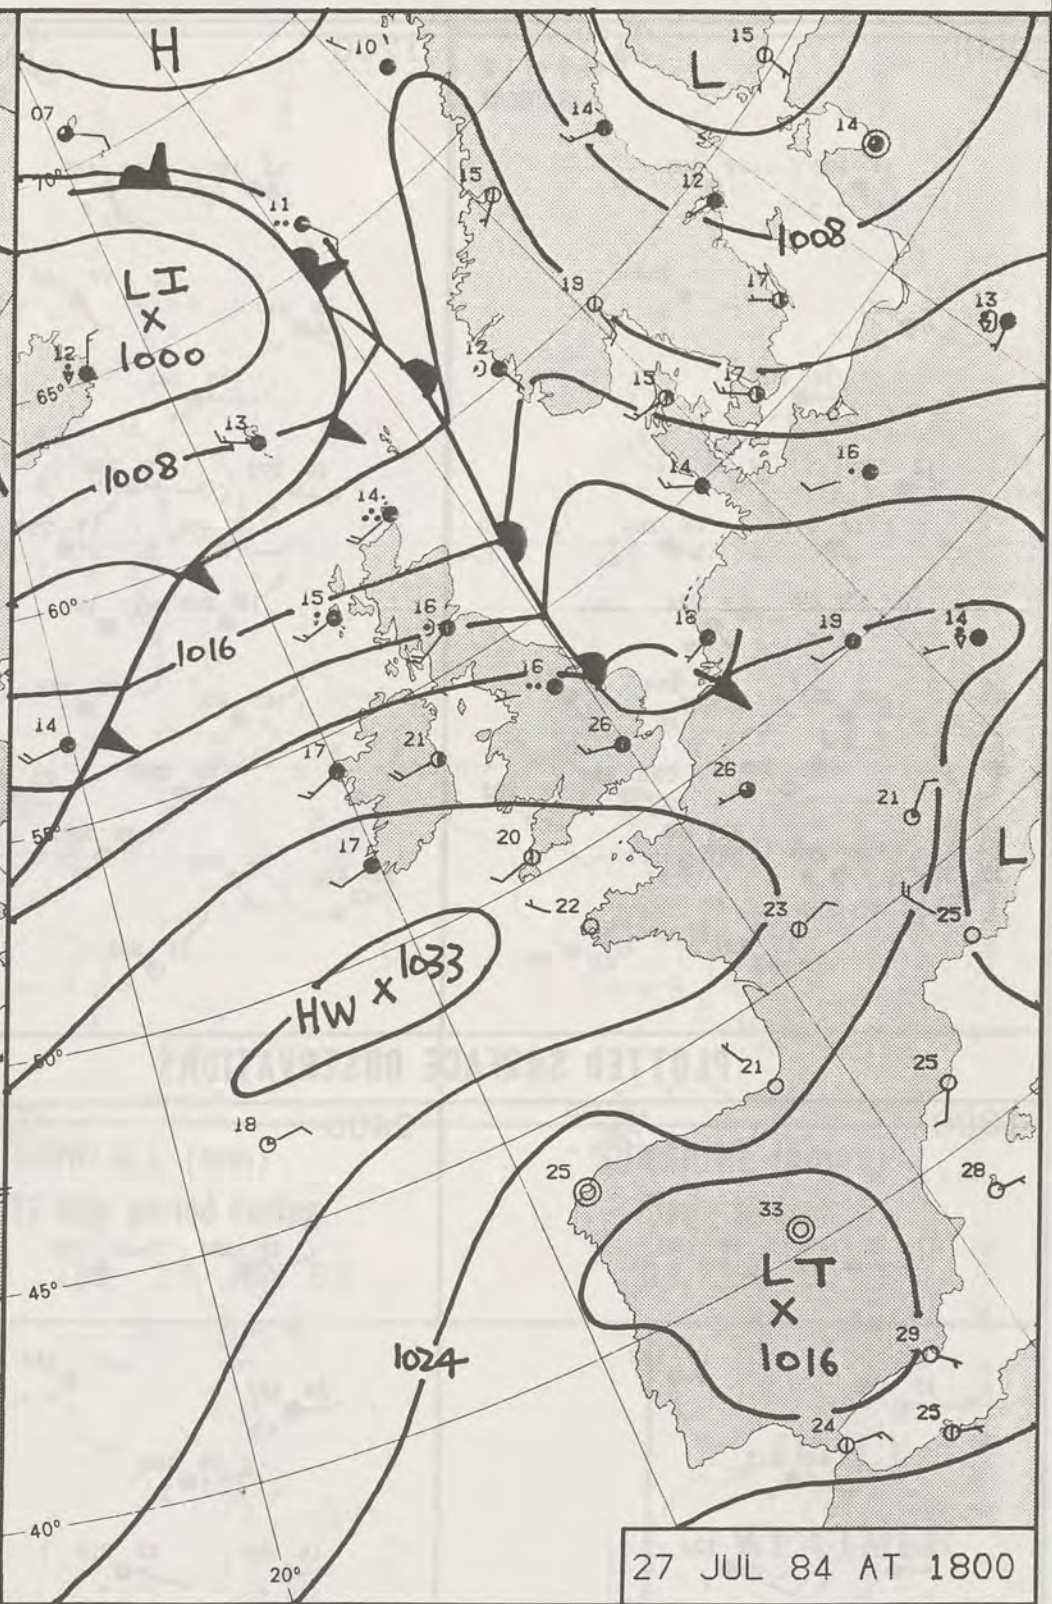 H
10
15
L
07
14
14
70°
15
12
11
1008
LI
X
1000
17
19
13
12
65°
12
15
17
13
1008
16
14
14
60°
15
16
18
19
14
1016
16
14
17
21
26
26
21
55°
17
20
L
22
23
25
1033
HW X
50°
21
25
18
25
28
33
LT
X
1016
45°
29
1024
24
25
40°
20°
27 JUL 84 AT 1800